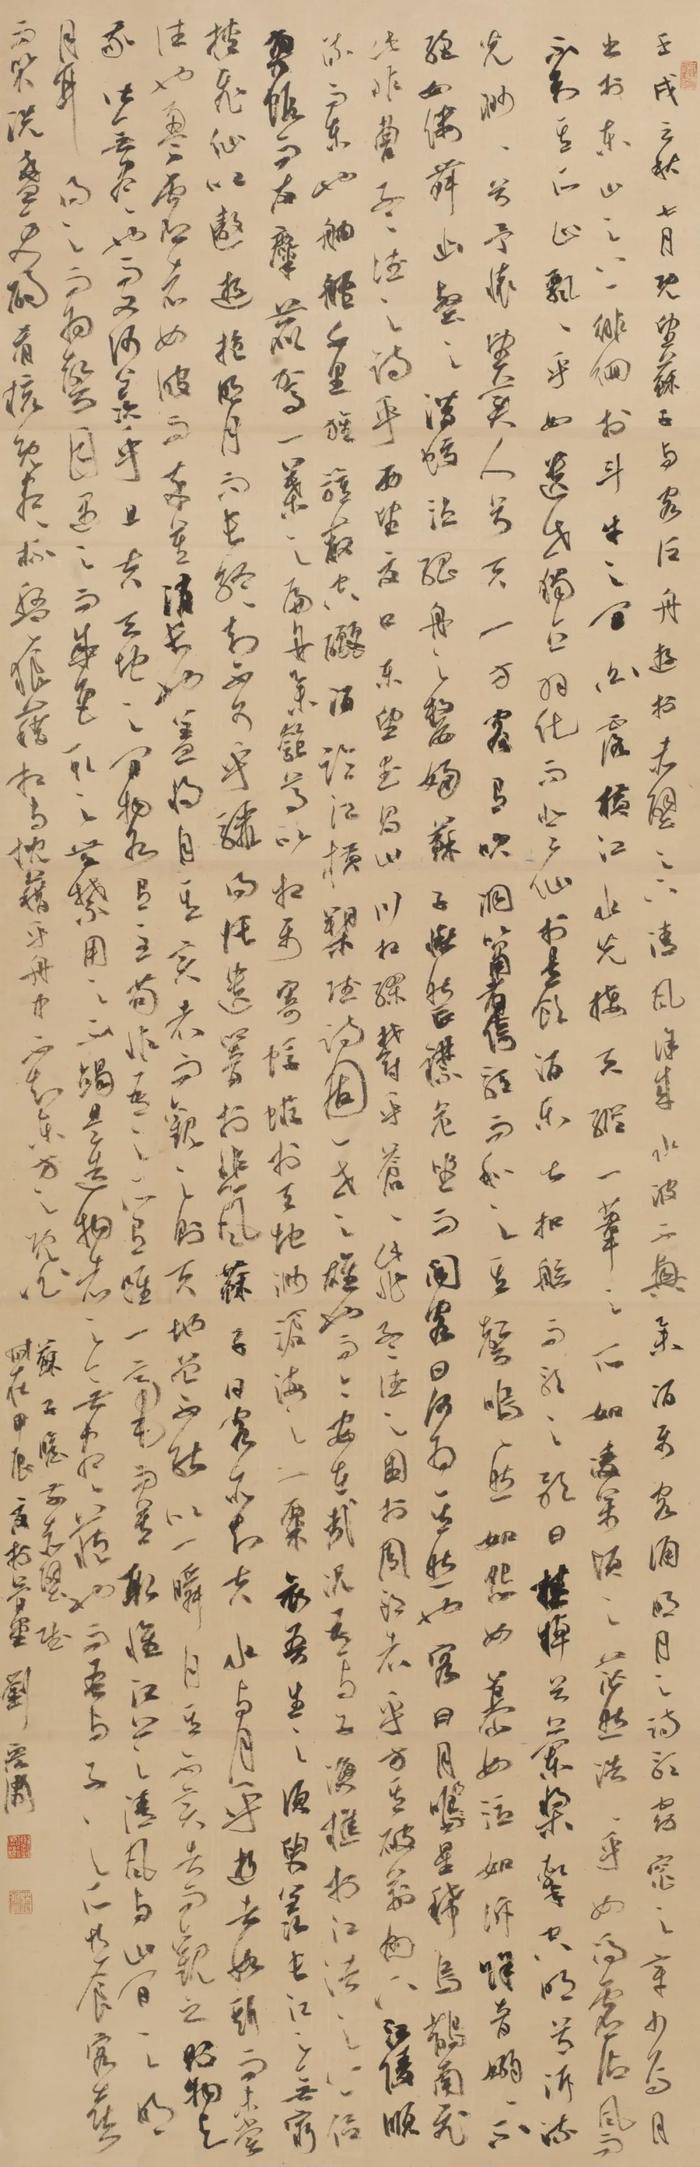 壬戌之秋七月既望蘇子与客泛舟遊於赤壁之下清風徐來水波不興舉酒属客誦明月之詩歌窈窕之章少焉月
出於東山之上徘徊於斗牛之間白露横江水光接天縱一葦之所如凌萬頃之茫然浩浩乎如馮虚御風而
不知其所止飄飄乎如遺世獨立羽化而登仙於是飲酒樂甚扣舷而歌之歌曰桂棹兮蘭槳擊空明兮泝流
光渺渺兮予懷望美人兮天一方客有吹洞簫者倚歌而和之其聲嗚嗚然如怨如慕如泣如訴餘音嫋嫋不
絕如縷舞幽壑之潛蛟泣孤舟之嫠婦蘇子愀然正襟危坐而問客曰何為其然也客曰月明星稀烏鵲南飛
此非曹孟德之詩乎西望夏口東望武昌山川相繆鬱乎蒼蒼此非孟德之困於周郎者乎方其破荆州下江陵順
流而東也舳艫千里旌旗蔽空釃酒臨江横槊賦詩固一世之雄也而今安在哉況吾与子漁樵於江渚之上侣
魚蝦而友麋鹿駕一葉之扁舟舉匏尊以相属寄蜉蝣於天地渺滄海之一粟哀吾生之須臾羨長江之無窮
挾飛仙以遨遊抱明月而長終知不可乎驟得託遺響於悲風蘇子曰客亦知夫水与月乎逝者如斯而未嘗
往也盈虚者如彼而卒莫消長也蓋將自其變者而觀之則天地曾不能以一瞬自其不變者而觀之則物与
我皆無盡也而又何羨乎且夫天地之間物各有主苟非吾之所有雖一毫而莫取惟江上之清風与山間之明
月耳得之而為聲目遇之而成色取之無禁用之不竭是造物者之無盡藏也而吾与子之所共食客喜
而笑洗盞更酌肴核既盡杯盤狼藉相与枕藉乎舟中不知東方之既白
蘇子瞻前赤壁賦
時在甲辰夏於
劉